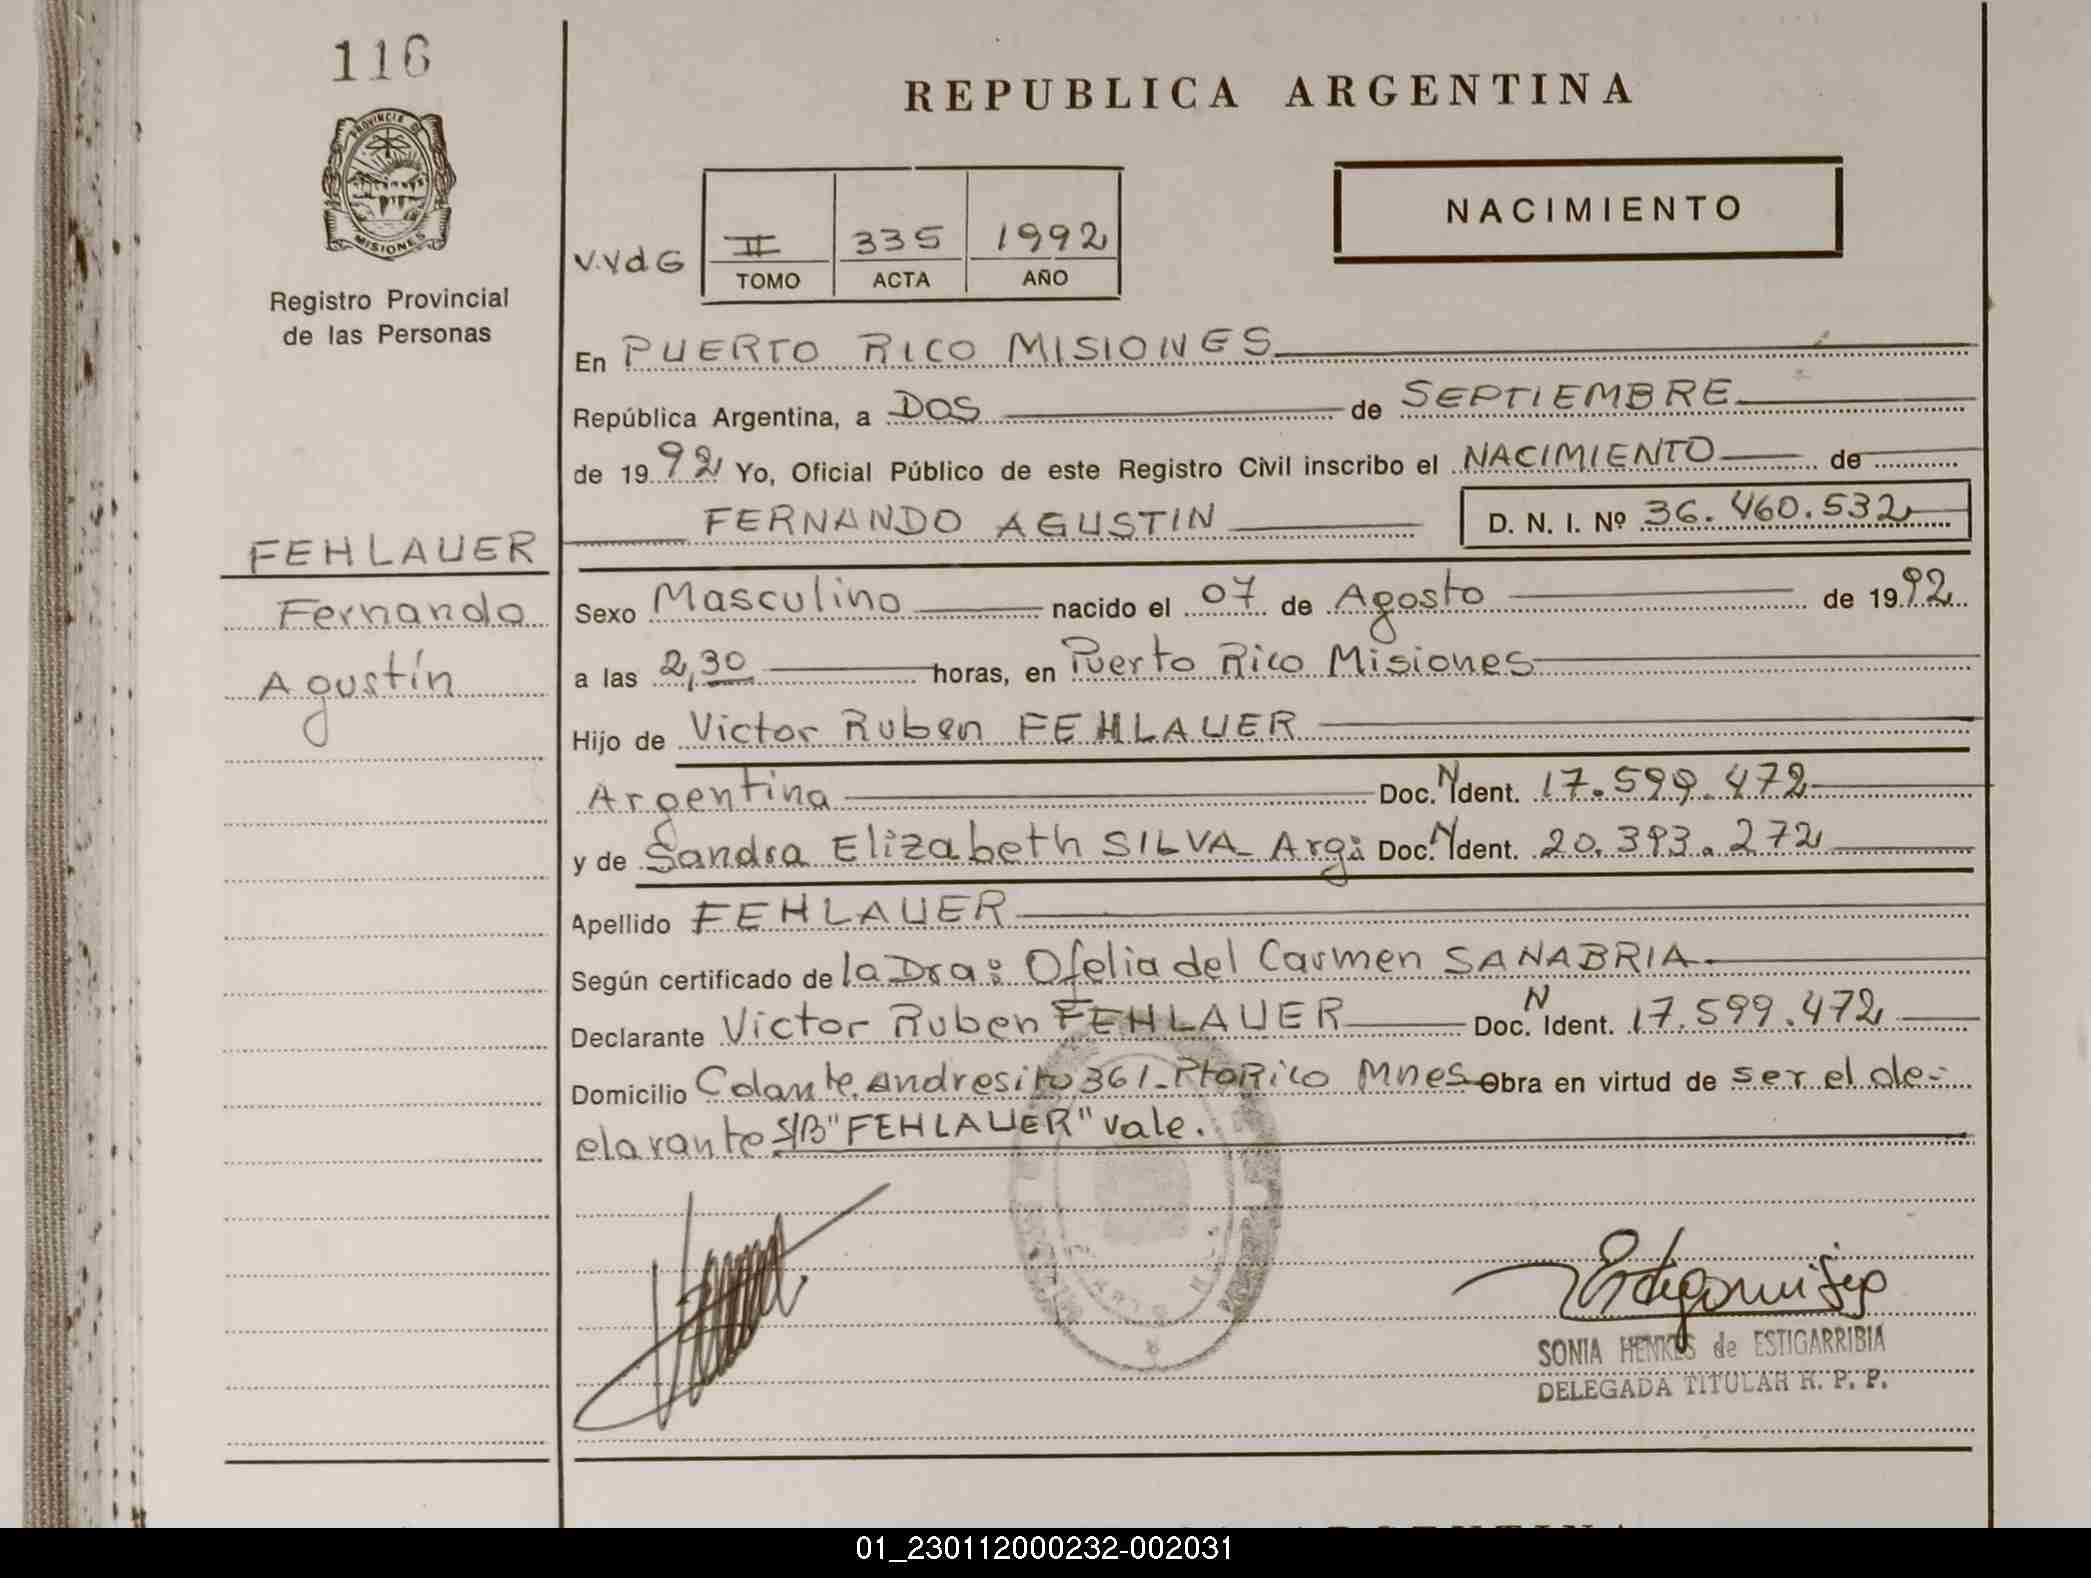 116
REPUBLICA ARGENTINA
PROVINCIA DE
MISIONES
NACIMIENTO
V.VdG
II 335 1992
TOMO ACTA AÑO
Registro Provincial
de las Personas
En PUERTO RICO MISIONES
República Argentina, a DOS de SEPTIEMBRE
de 1992 Yo, Oficial Público de este Registro Civil inscribo el NACIMIENTO de
FERNANDO AGUSTIN D. N. I. Nº 36.460.532
FEHLAUER
Fernando
Agustín
Sexo Masculino nacido el 07 de Agosto de 1992
a las 2,30 horas, en Puerto Rico Misiones
Hijo de Victor Ruben FEHLAUER
Argentina Doc. N Ident. 17.599.472
y de Sandra Elizabeth SILVA Arg: Doc. N Ident. 20.393.272
Apellido FEHLAUER
Según certificado de la Dra: Ofelia del Carmen SANABRIA
Declarante Victor Ruben FEHLAUER Doc. N Ident. 17.599.472
Domicilio Cdante. Andresito 361 - Pto Rico Mnes Obra en virtud de ser el de-
clarante S/B "FEHLAUER" vale.
SONIA HENKES de ESTIGARRIBIA
DELEGADA TITULAR R. P. P.
01_230112000232-002031